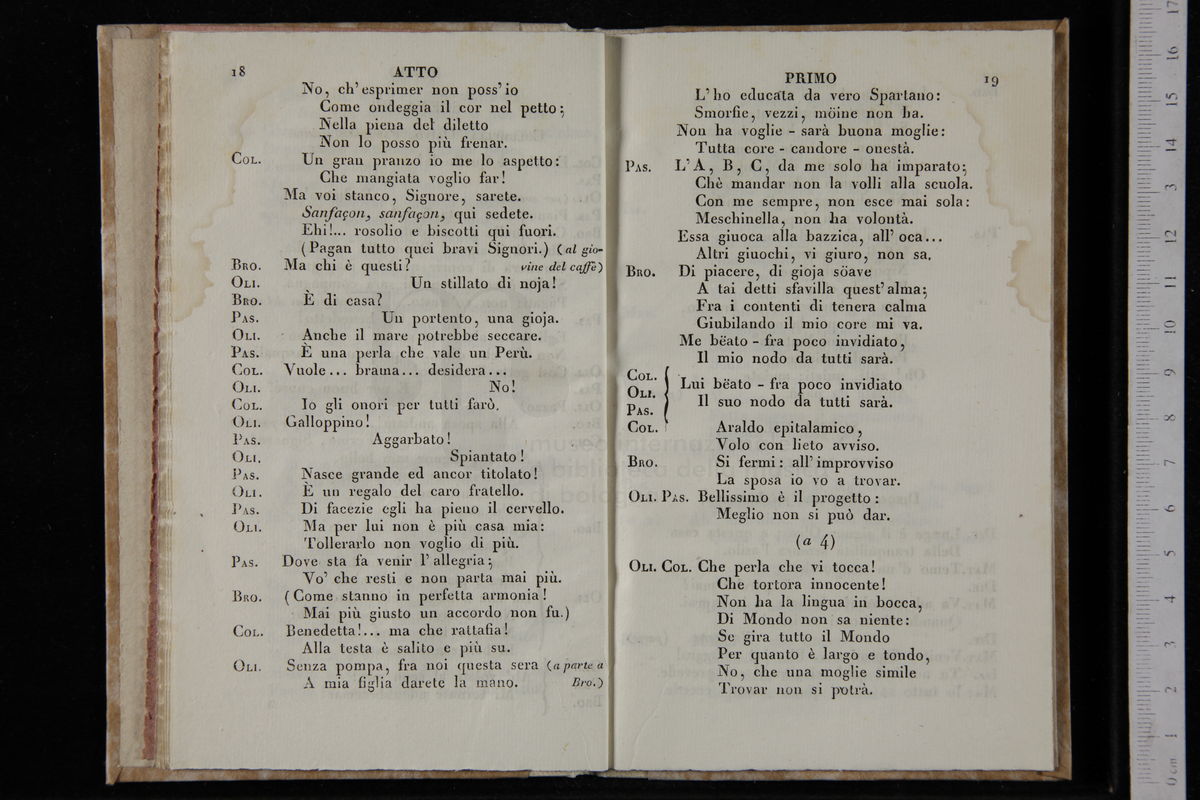 18
ATTO
No, ch'esprimer non poss'io
Come ondeggia il cor nel petto;
Nella piena del diletto
Non lo posso più frenar.
COL. Un gran pranzo io me lo aspetto:
Che mangiata voglio far!
Ma voi stanco, Signore, sarete.
Sanfaçon, sanfaçon, qui sedete.
Ehi!... rosolio e biscotti qui fuori.
(Pagan tutto quei bravi Signori.) (al gio-
BRO. Ma chi è questi? vine del caffè)
OLI. Un stillato di noja!
BRO. È di casa?
PAS. Un portento, una gioja.
OLI. Anche il mare potrebbe seccare.
PAS. È una perla che vale un Perù.
COL. Vuole... brama... desidera...
OLI. No!
COL. Io gli onori per tutti farò.
OLI. Galloppino!
PAS. Aggarbato!
OLI. Spiantato!
PAS. Nasce grande ed ancor titolato!
OLI. È un regalo del caro fratello.
PAS. Di facezie egli ha pieno il cervello.
OLI. Ma per lui non è più casa mia:
Tollerarlo non voglio di più.
PAS. Dove sta fa venir l'allegria;
Vo' che resti e non parta mai più.
BRO. (Come stanno in perfetta armonia!
Mai più giusto un accordo non fu.)
COL. Benedetta!... ma che rattafia!
Alla testa è salito e più su.
OLI. Senza pompa, fra noi questa sera (a parte a
A mia figlia darete la mano. Bro.)
PRIMO
19
L'ho educata da vero Spartano:
Smorfie, vezzi, möine non ha.
Non ha voglie - sarà buona moglie:
Tutta core - candore - onestà.
PAS. L'A, B, C, da me solo ha imparato;
Chè mandar non la volli alla scuola.
Con me sempre, non esce mai sola:
Meschinella, non ha volontà.
Essa giuoca alla bazzica, all'oca...
Altri giuochi, vi giuro, non sa.
BRO. Di piacere, di gioja söave
A tai detti sfavilla quest'alma;
Fra i contenti di tenera calma
Giubilando il mio core mi va.
Me bëato - fra poco invidiato,
Il mio nodo da tutti sarà.
COL.
OLI. Lui bëato - fra poco invidiato
PAS. Il suo nodo da tutti sarà.
COL. Araldo epitalamico,
Volo con lieto avviso.
BRO. Si fermi: all'improvviso
La sposa io vo a trovar.
OLI. PAS. Bellissimo è il progetto:
Meglio non si può dar.
(a 4)
OLI. COL. Che perla che vi tocca!
Che tortora innocente!
Non ha la lingua in bocca,
Di Mondo non sa niente:
Se gira tutto il Mondo
Per quanto è largo e tondo,
No, che una moglie simile
Trovar non si potrà.